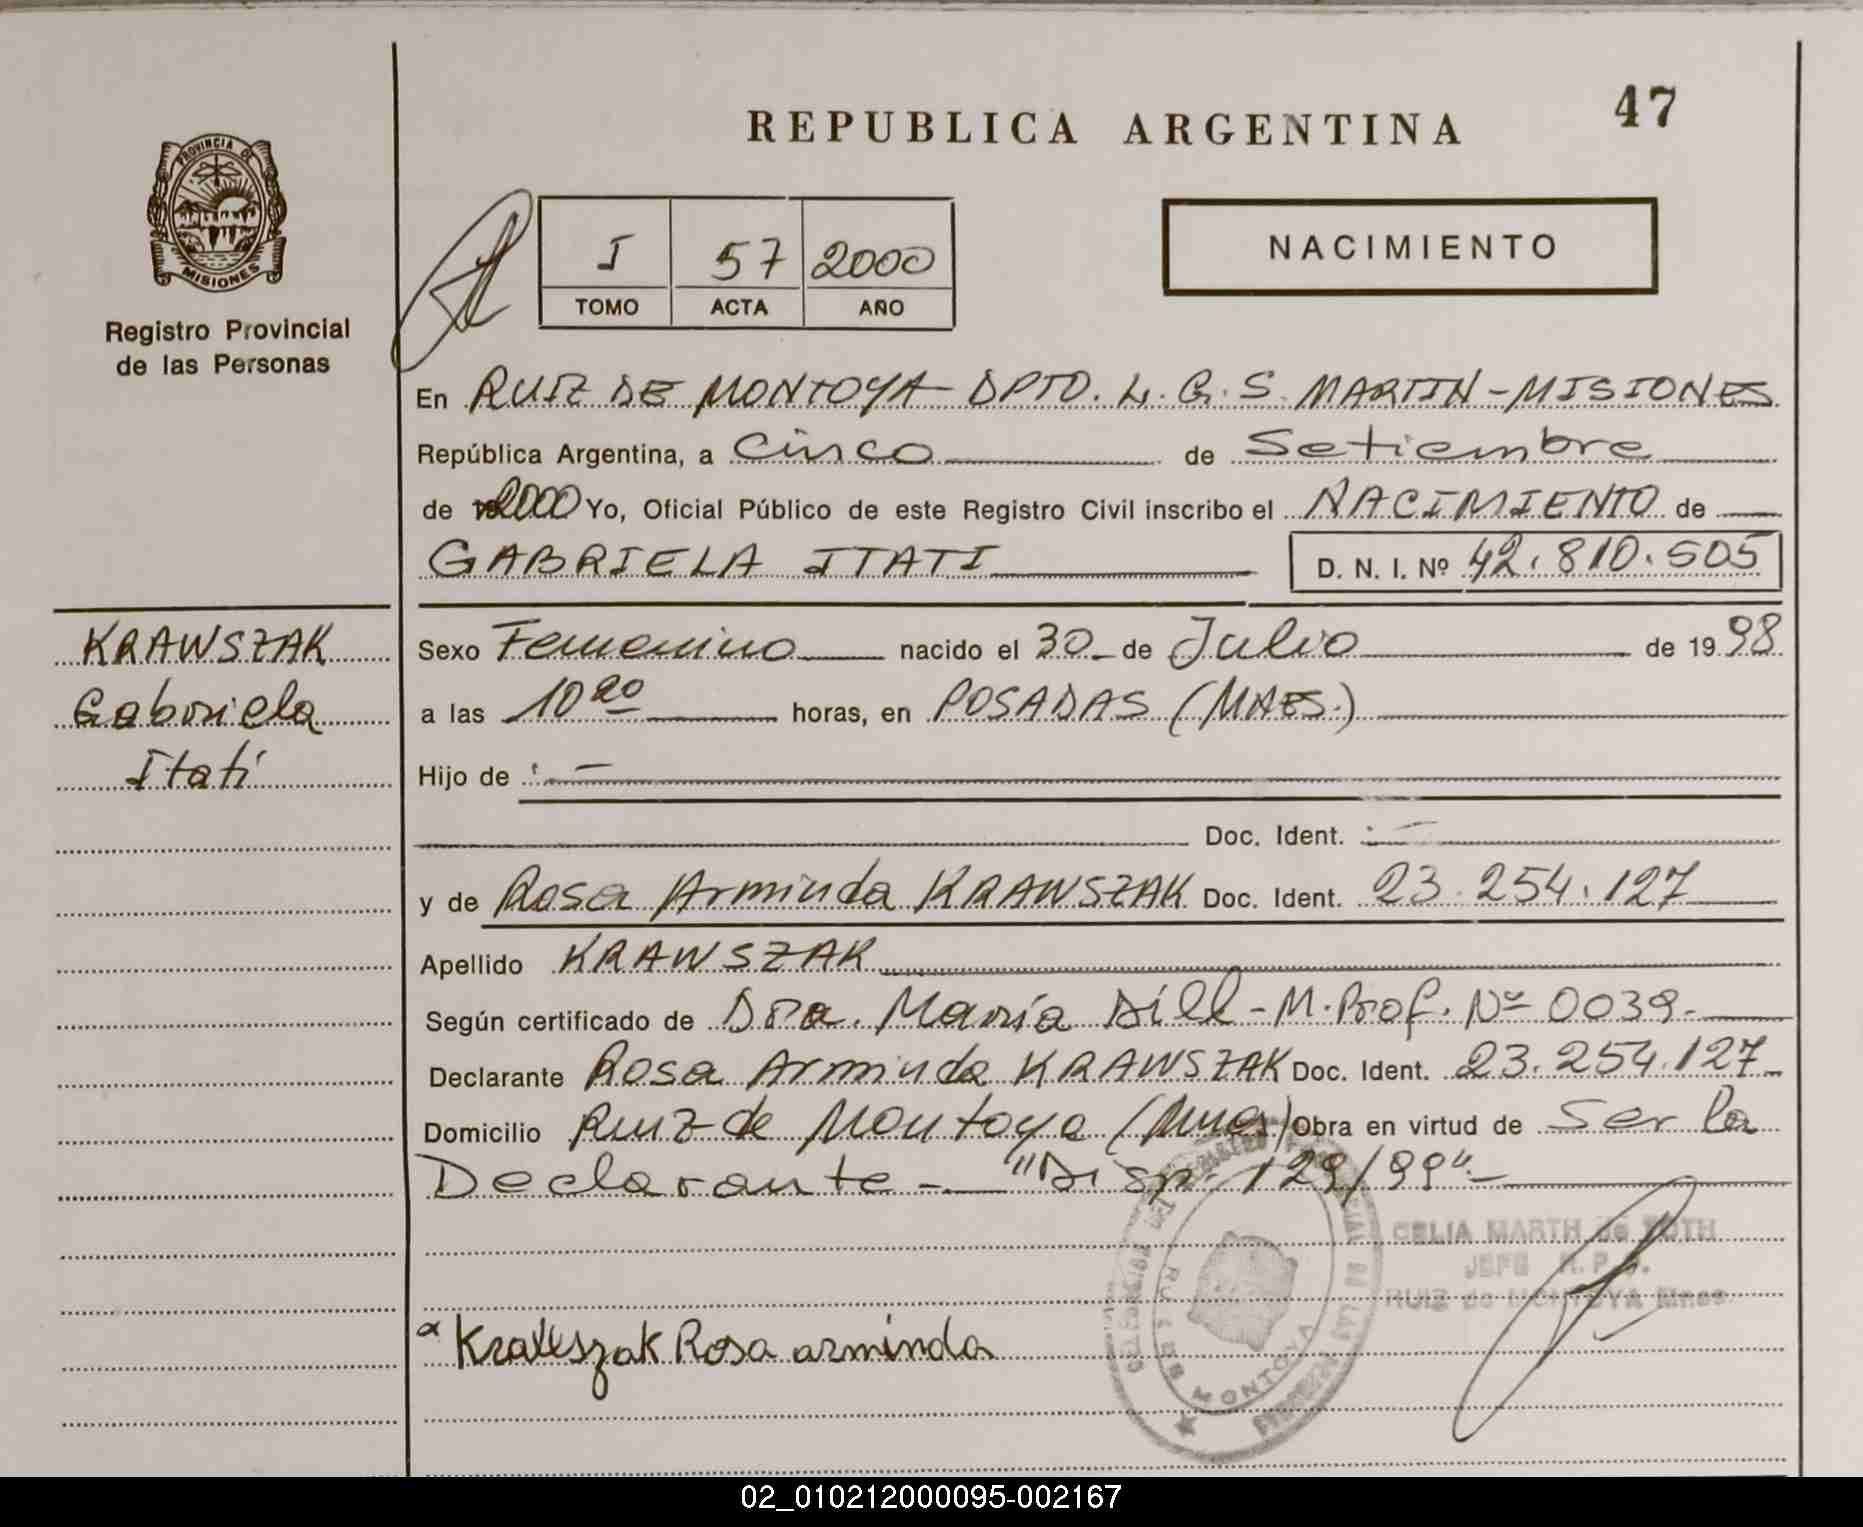 47
REPUBLICA ARGENTINA
PROVINCIA DE
MISIONES
Registro Provincial
de las Personas
I 57 2000
TOMO ACTA AÑO
NACIMIENTO
En RUIZ DE MONTOYA DPTO. L. G. S. MARTIN - MISIONES
República Argentina, a Cinco de Setiembre
de 2000 Yo, Oficial Público de este Registro Civil inscribo el NACIMIENTO de
GABRIELA ITATI D. N. I. Nº 42.810.505
KRAWSZAK
Gabriela
Itati
Sexo Femenino nacido el 30 de Julio de 1998
a las 10 20 horas, en POSADAS (MNES.)
Hijo de
Doc. Ident.
y de Rosa Arminda KRAWSZAK Doc. Ident. 23.254.127
Apellido KRAWSZAK
Según certificado de Dra. María Dill - M. Prof. Nº 0039.
Declarante Rosa Arminda KRAWSZAK Doc. Ident. 23.254.127
Domicilio Ruiz de Montoya (Mnes) Obra en virtud de Ser la
Declarante - "Disp. 129/99"
CELIA MARTH de ROTH
JEFE R. P. P.
RUIZ de MONTOYA Mnes
Krawszak Rosa arminda
02_010212000095-002167